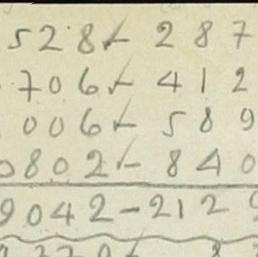 528 - 287
706 - 412
006 - 589
0802 - 840
9042 - 212